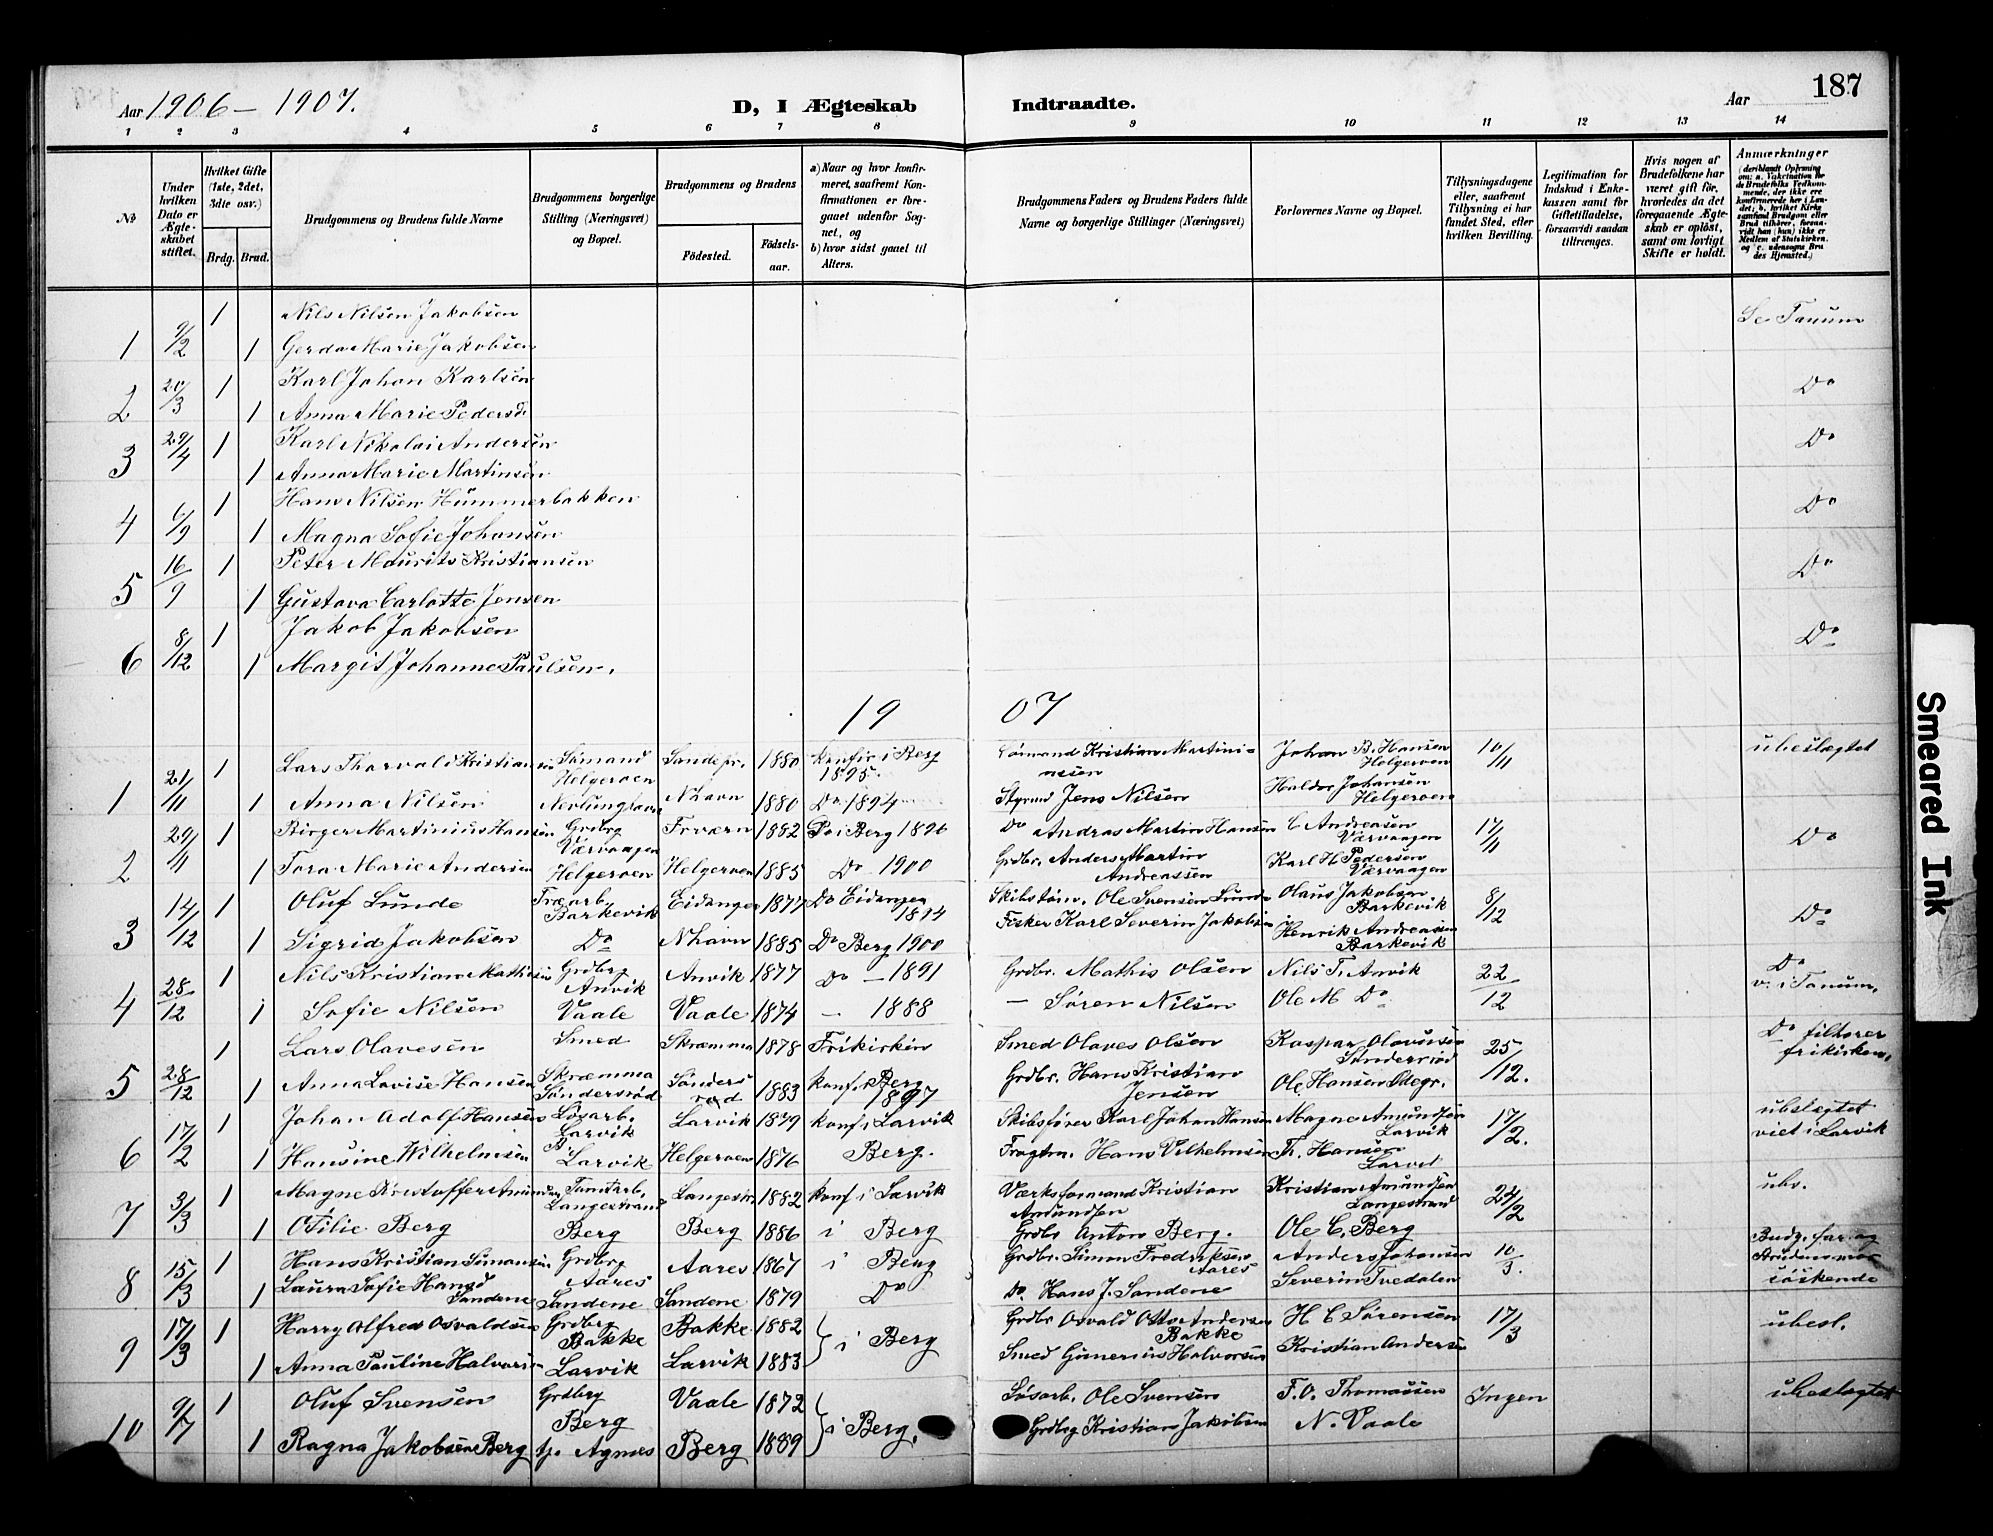 Aar 1906 - 1907. D, I Ægteskab Indtraadte. Aar 187
1 2 3 4 5 6 7 8 9 10 11 12 13 14
№
Under hvilken Dato er Ægteskabet stiftet.
Hvilket Gifte (1ste, 2det, 3die osv.)
Brdg. Brud.
Brudgommens og Brudens fulde Navne
Brudgommens borgerlige Stilling (Næringsvei) og Bopæl.
Brudgommens og Brudens
Fødested. Fødselsaar.
a) Naar og hvor konfirmeret, saafremt Konfirmationen er foregaaet udenfor Sognet, og
b) hvor sidst gaaet til Alters.
Brudgommens Faders og Brudens Faders fulde Navne og borgerlige Stillinger (Næringsvei)
Forlovernes Navne og Bopæl.
Tillysningsdagene eller, saafremt Tillysning ei har fundet Sted, efter hvilken Bevilling.
Legitimation for Indskud i Enkekassen samt for Giftetilladelse, forsaavidt saadan tiltrænges.
Hvis nogen af Brudefolkene har været gift før, hvorledes da det foregaaende Ægteskab er opløst, samt om lovligt Skifte er holdt.
Anmærkninger
(deriblandt Oplysning om: a. Vakcination for de Brudefolks Vedkommende, der ikke ere konfirmerede her i Landet; b. hvilket Kirkesamfund Brudgom eller Brud tilhører, forsaavidt han (hun) ikke er Medlem af Statskirken, og c. udensogns Brudes Hjemsted.)
1 9/2 1 Nils Nilsen Jakobsen Se Tanum
1 Gerda Marie Jakobsen
2 20/3 1 Karl Johan Karlsen Do
1 Anna Marie Pedersd.
3 29/4 1 Karl Nikolai Andersen Do
1 Anna Marie Martinsen
4 6/9 1 Hans Nilsen Hummerbakken Do
1 Magna Sofie Johansen
5 16/9 1 Peter Maurits Kristiansen Do
1 Gustava Carlotte Jensen
6 8/12 1 Jakob Jakobsen Do
1 Margit Johanne Paulsen.
19 07
1 21/11 1 Lars Thorvald Kristiansen Sömand Helgeroen Sandefr. 1880 Konfir i Berg 1895. Sömand Kristian Martiniassen Johan B. Hansen Helgeroen 10/11 ubeslægtet
1 Anna Nilsen Nevlunghavn Nhavn 1880 Do 1894 Styrmd Jens Nilsen Haldor Johansen Helgeroen
2 29/11 1 Birger Martinius Hansen Grdbrg Værvaagen 1882 Do i Berg 1896 Do Andras Martin Hansen C Andreasen Værvaagen 17/11 Do
1 Tora Marie Andersen Helgeroen Helgeroen 1885 Do 1900 Grdbr. Anders Martin Andreassen Karl H. Pedersen Værvaagen
3 14/12 1 Oluf Lunde Træarb. Barkevik Eidanger 1877 Do Eidanger Skibstöm. Ole Svensen Lunde Olaus Jakobsen Barkevik 8/12 Do
1 Sigrid Jakobsen Do Nhavn 1885 Do Berg 1900 Fisker Karl Severin Jakobsen Henrik Andreasen Barkevik
4 28/12 1 Nils Kristian Mathisen Grdbrg Anvik Anvik 1877 Do - 1891 Grdbr. Mathis Olsen Nils T. Anvik 22/12 Do v. i Tanum.
1 Sofie Nilsen Vaale Vaale 1874 - 1888 - Søren Nilsen Ole M Do
5 28/12 1 Lars Olavesen Smed Skræmma Skræmma 1878 Frikirken Smed Olaves Olsen Kaspar Olavesen Søndersrød 25/12. Do tilhører frikirken.
1 Anna Lovise Hansen Søndersrød Sønders rød 1883 konf. i Berg 1897 Grdbr. Hans Kristian Jensen Ole Hansen Odegr.
6 17/2 1 Johan Adolf Hansen Løsarb. Larvik Larvik 1879 konf i Larvik Skibsfører Karl Johan Hansen Magne Amundsen Larvik 17/2. ubslægtet viet i Larvik
1 Hansine Wilhelmsen Larvik Helgeroen 1876 Berg. Fragtm. Hans Vilhelmsen Th. Hansen
7 3/3 1 Magne Kristoffer Amundsen Langestrand Langestr. 1882 konf i Larvik Værksformand Kristian Amundsen Kristian Amundsen Langestrand 24/2 ubs.
1 Otilie Berg Berg Berg 1886 i Berg Grdbr Anton Berg. Ole C. Berg
8 15/3 1 Hans Kristian Simonsen Grdbrg Aares Aares 1867 i Berg Grdbr. Simon Fredriksen Aares Anders Johansen 10/3. Budg. far og Brudens mor söskende
1 Laura Sofie Hansd Sandene Sandene Sandene 1879 Do Do Hans J. Sandene Severin Tvedalen
9 17/3 1 Harry Alfred Osvaldsen Grdbrg Bakke Bakke 1882 i Berg Grdbr Osvald Otto Andersen Bakke H C Sørensen 17/3 ubesl.
1 Anna Pauline Halvorsen Larvik Larvik 1883 Smed Gunerius Halvorsen Kristian Andersen
10 9/7 1 Oluf Svensen Grdbrg Berg Vaale 1872 i Berg. Løsarb. Ole Svensen T. O. Thomassen Ingen ubeslægtet
1 Ragna Jakobsen Berg tj. Agnes Berg 1889 Grdbrg Kristian Jakobsen N. Vaale
Smeared Ink